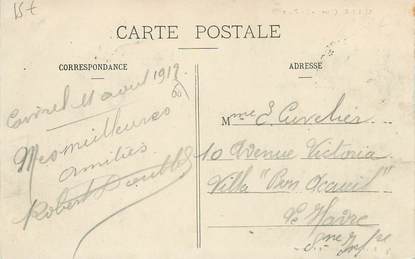 15 €
CARTE POSTALE
CORRESPONDANCE
ADRESSE
11 aout 1917
Mes meilleures
amitiés
Robert
Mme E. Cuvelier
10 Avenue Victoria
Villa "Bon Accueil"
Le Havre
Sne Infre